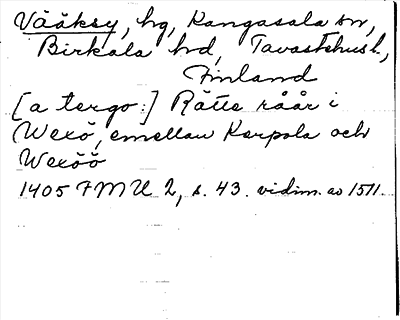 Vääksy, hg, Kangasala sn,
Birkala hd, Tavastehus l.,
Finland
[a tergo:] Rätte råår i
Wexö, emellan Karpola och
Wexöö
1405 FMU 2, s. 43. vidim. av 1511.